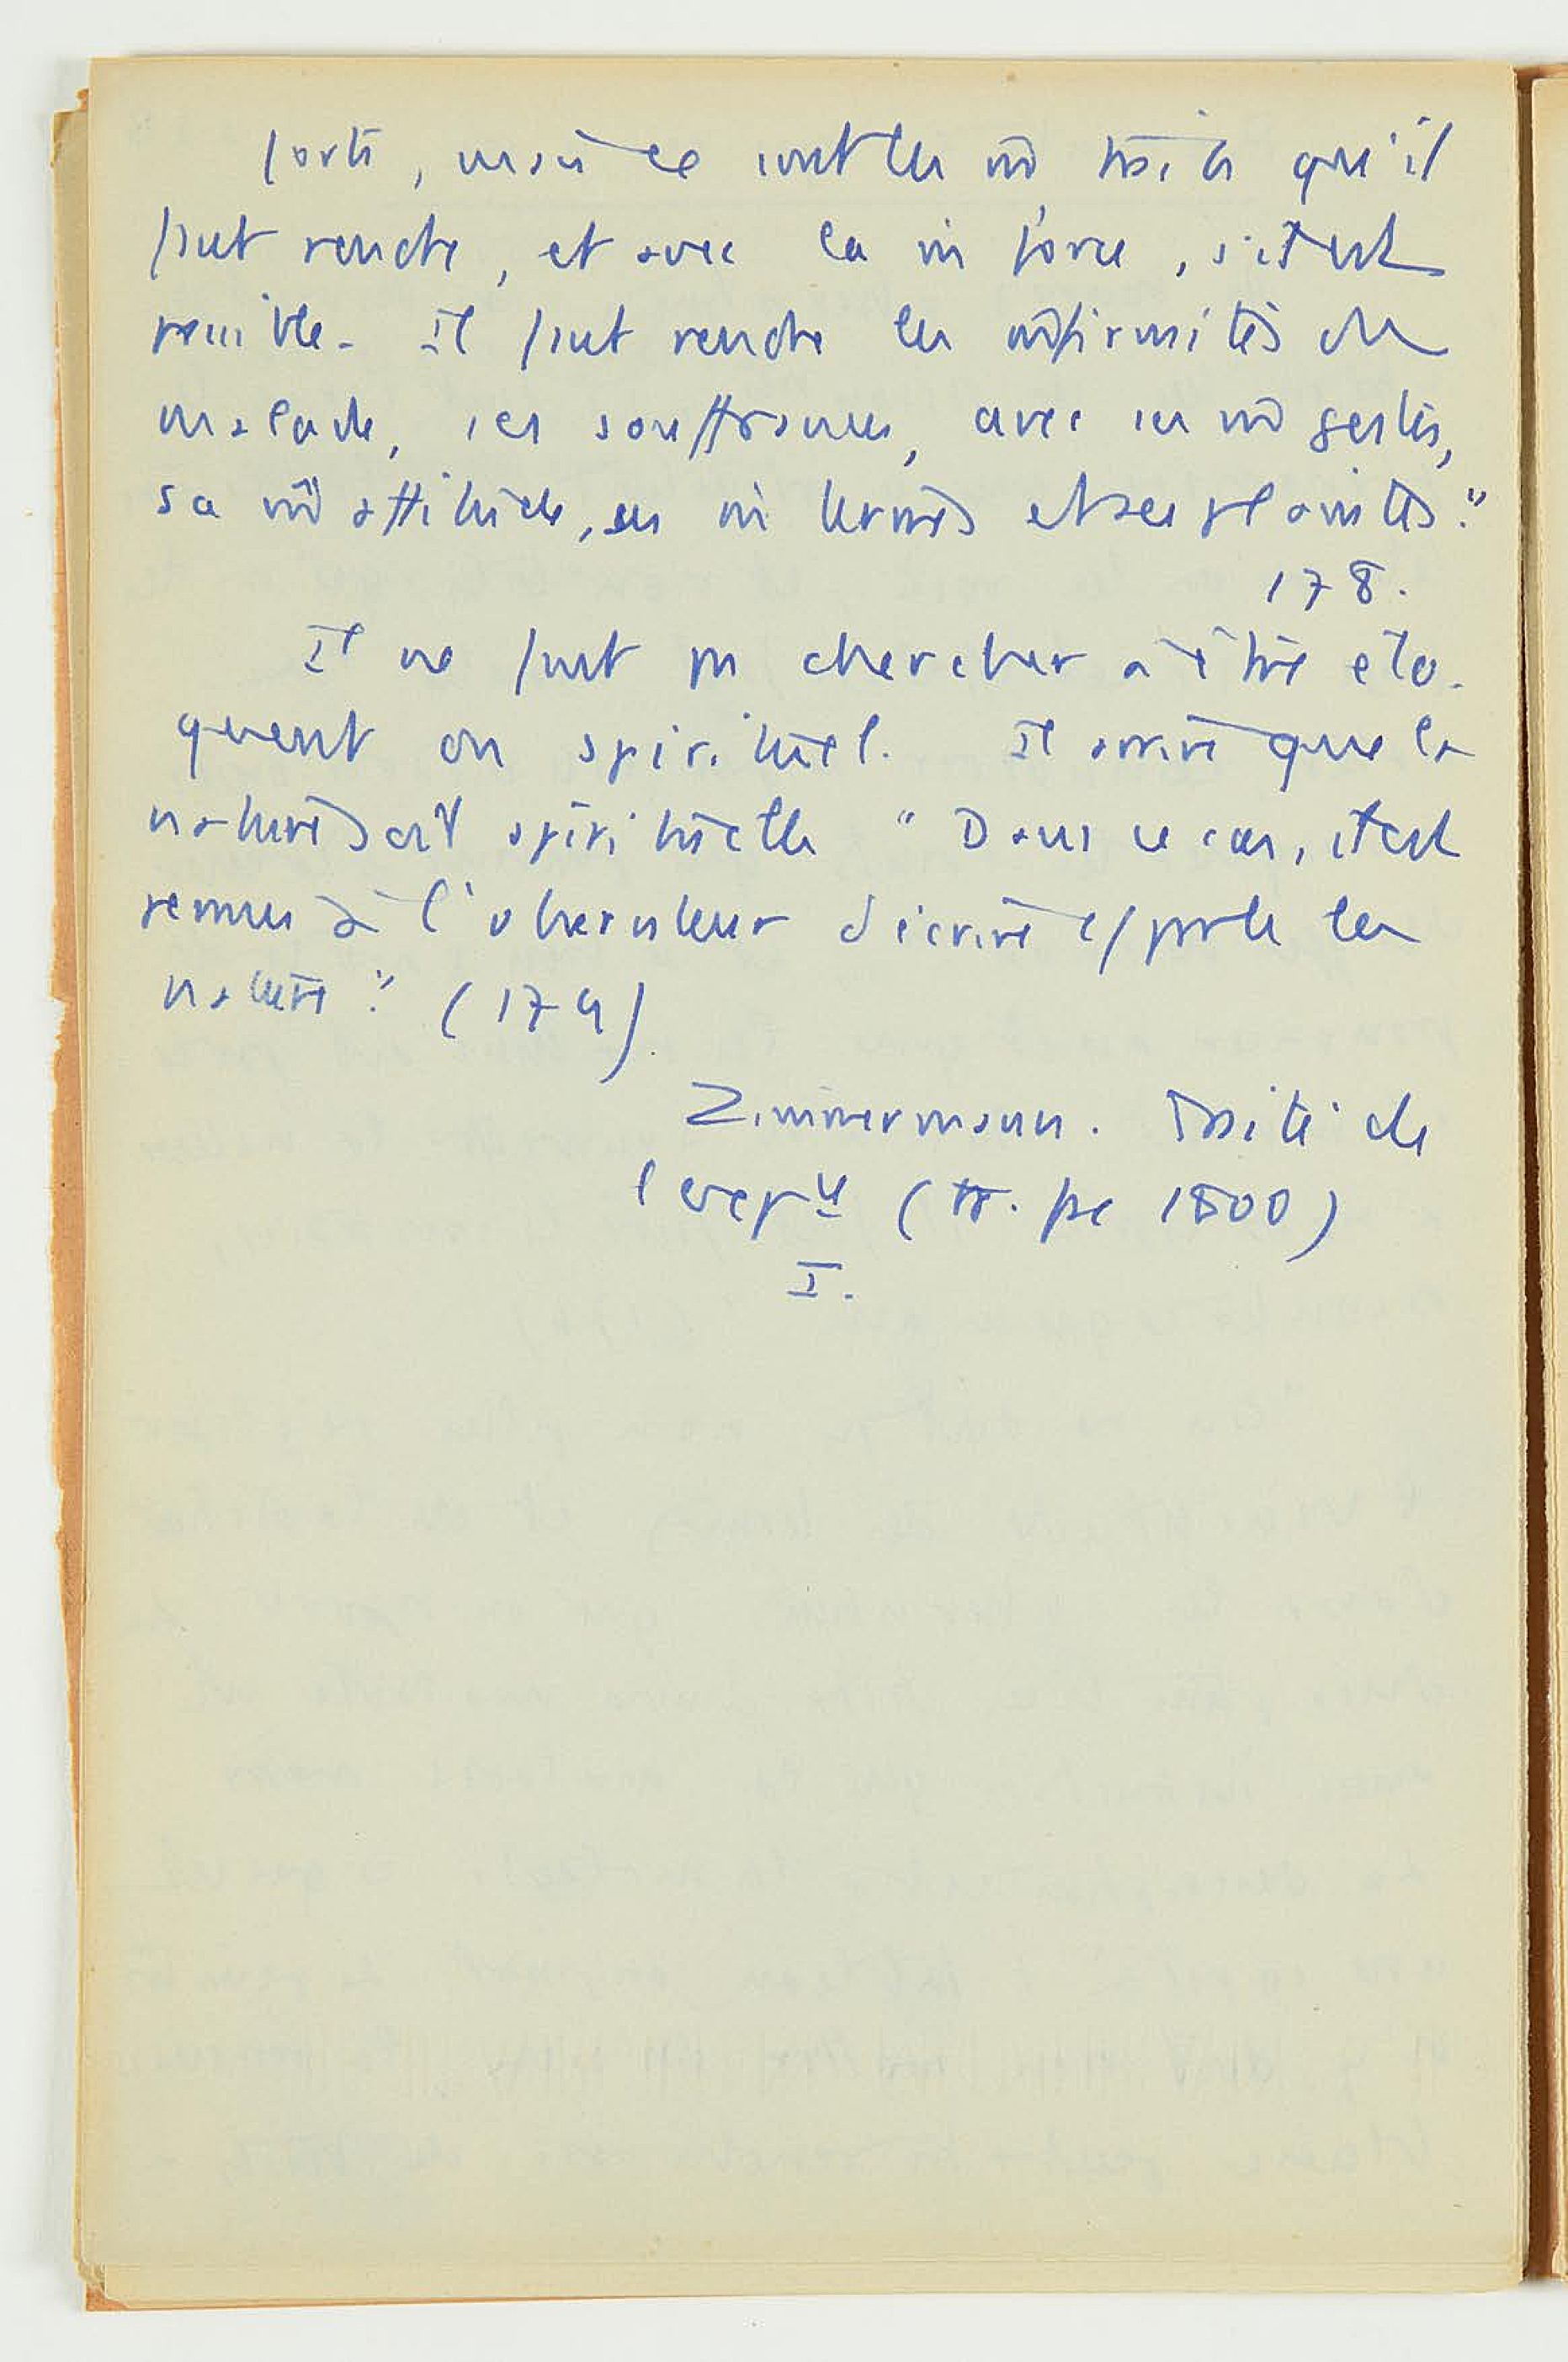 forts, mais ce sont les m̃ traits qu'il
faut rendre, et avec la m̃ force, s'il est
possible. Il faut rendre les m̃ infirmités du
malade, ses souffrances, avec ses m̃ gestes,
sa m̃ attitude, ses m̃ termes et ses plaintes."
178.
Il ne faut pas chercher à être élo-
quent ou spirituel. Il arrive que la
nature soit spirituelle "Dans ce cas, il est
permis à l'observateur d'écrire c/ parle la
nature." (179)
Zimmermann. Traité de
l'exp ce (tr. fse 1800)
I.